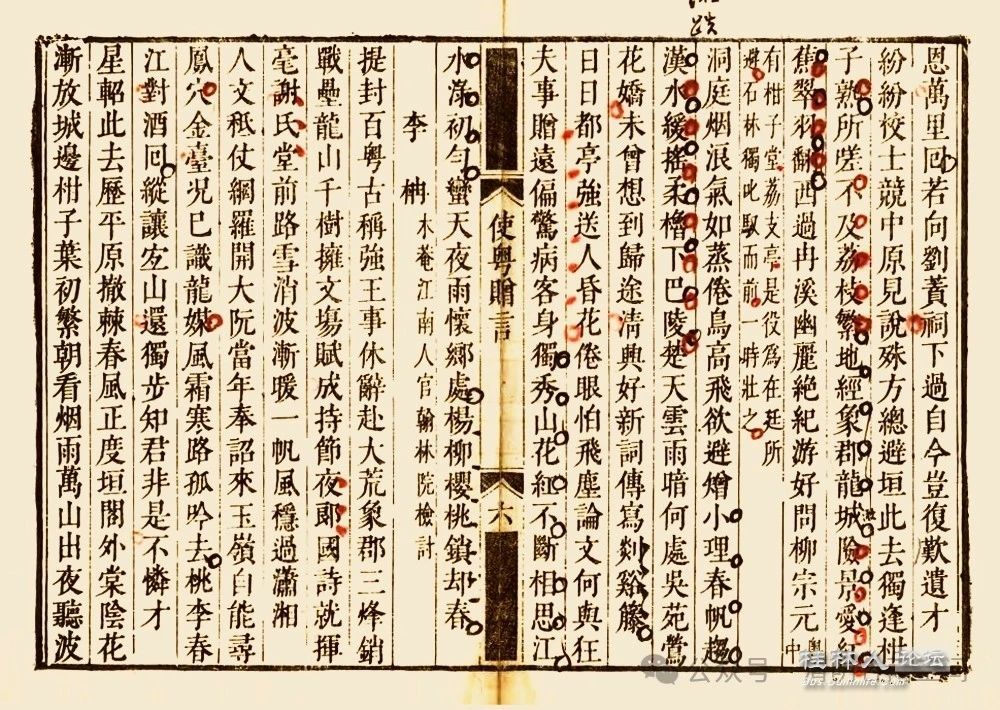 恩萬里囘若向劉蕡祠下過自今豈復歎遺才
紛紛校士競中原見說殊方總避垣此去獨逢柑
子熟所嗟不及荔枝繁地經象郡龍城險景愛紅
蕉翠羽翻西過冉溪幽麗絶紀游好問柳宗元粵中
有柑子堂荔支亭是役爲在廷所
避石林獨叱馭而前一時壯之
洞庭烟浪氣如蒸倦鳥高飛欲避矰小理春帆趨
漢水緩搖柔櫓下巴陵楚天雲雨暗何處吳苑鶯
花嬌未曾想到歸途淸興好新詞傳寫剡谿籐
日日都亭強送人昏花倦眼怕飛塵論文何與狂
夫事贈遠偏驚病客身獨秀山花紅不斷相思江
使粵贈言 六
水淥初勻蠻天夜雨懷鄉處楊柳櫻桃鎖却春
李枏 木菴江南人官翰林院檢討
提封百粵古稱強王事休辭赴大荒象郡三烽銷
戰壘龍山千樹擁文塲賦成持節夜郞國詩就揮
毫謝氏堂前路雪消波漸暖一帆風穩過瀟湘
人文秪仗網羅開大阮當年奉詔來玉嶺自能尋
鳳穴金臺况已識龍媒風霜寒路孤吟去桃李春
江對酒囘縱讓宏山還獨步知君非是不憐才
星軺此去歷平原撤棘春風正度垣閣外棠陰花
漸放城邊柑子葉初繁朝看烟雨萬山出夜聽波
公众号
桂林人论坛